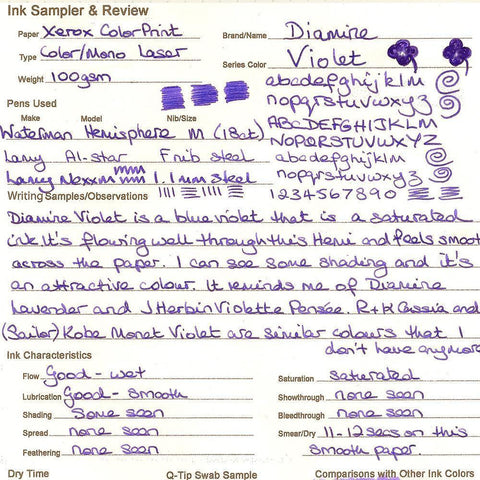 Ink Sampler & Review
Paper Xerox ColorPrint
Brand/Name: Diamine
Type Color/Mono Laser
Series Color: Violet
Weight 100gsm
abcdefghijklm
nopqrstuvwxyz
Pens Used
Make Model Nib/Size
ABCDEFGHIJKLM
Waterman Hemisphere M (18ct)
NOPQRSTUVWXYZ
Lamy Al-star F nib steel
abcdefghijklm
Lamy Nexx M 1.1mm steel
nopqrstuvwxyz
Writing Samples/Observations
1234567890
Diamine Violet is a blue violet that is a saturated
ink. It's flowing well through this Hemi and feels smoot
across the paper. I can see some shading and it's
an attractive colour. It reminds me of Diamine
Lavender and J Herbin Violette Pensée. R+K Cassia and
(Sailor) Kobe Monet Violet are similar colours that I
don't have anymore
Ink Characteristics
Flow Good - wet
Saturation saturated
Lubrication Good - smooth
Showthrough none seen
Shading Some seen
Bleedthrough none seen
Spread none seen
Smear/Dry 11-12secs on this
Feathering none seen
smooth paper.
Dry Time
Q-Tip Swab Sample
Comparisons with Other Ink Colors